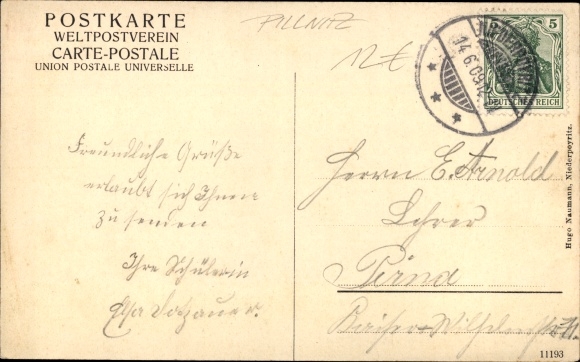 POSTKARTE
WELTPOSTVEREIN
CARTE-POSTALE
UNION POSTALE UNIVERSELLE
PILLNITZ
12€
14.6.09
5
DEUTSCHES REICH
Freundliche Grüße
erlaubt sich Ihnen
zu senden
Ihre Schülerin
Elsa
Herrn E. Arnold
Lehrer
Pirna
Kaiser-Wilhelmstr.
Hugo Naumann, Niederpoyritz.
11193